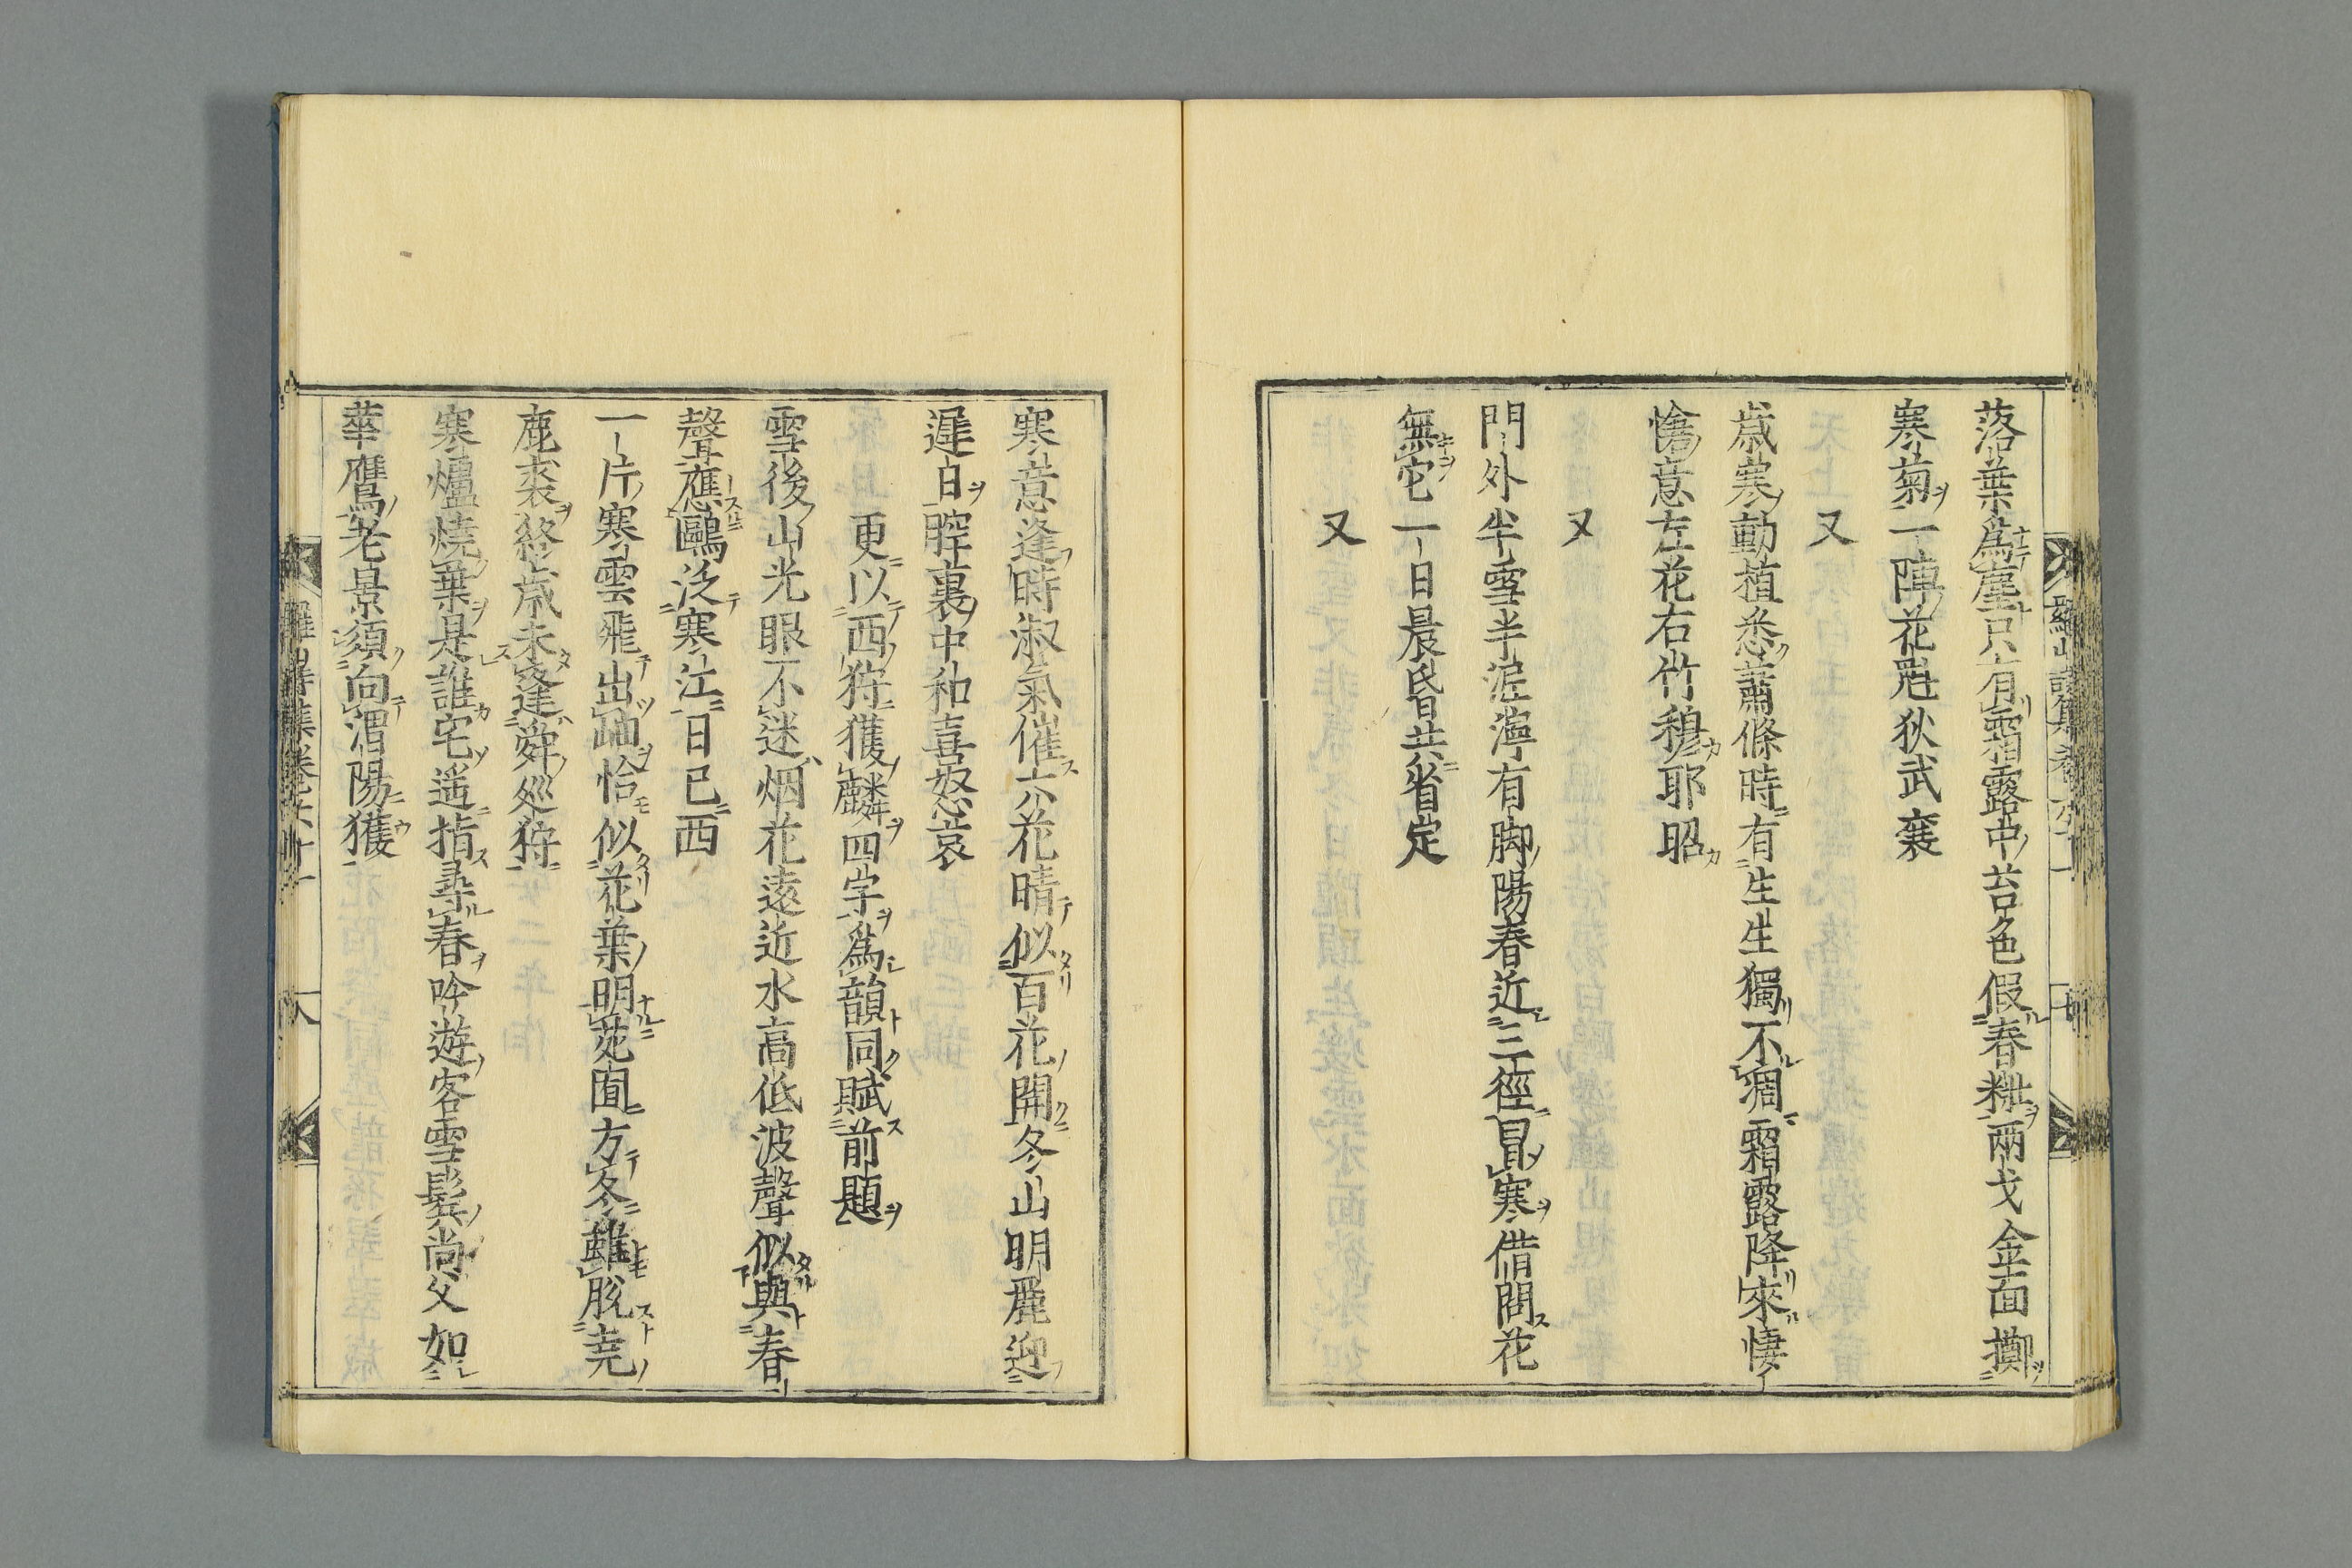 落葉爲塵只有霜露中苔色假春糚兩戈金面擲
寒菊一陣花魁狄武襄
又
歳寒動植悉蕭條時有生生獨不凋霜露降來悽
愴意左花右竹穆耶昭
又
門外半雪半濘有脚陽春近三徑冒寒借問花
無它一日晨昏共省定
又
寒意逢時淑氣催六花晴似百花開冬山明麗迎
遲白腔裏中和喜怒哀
更以西狩獲麟四字爲韻同賦前題
雪後山光眼不迷烟花遠近水高低波聲似與春
聲應鷗泛寒江日已西
一片寒雲飛出岫恰似花葉明苑囿方冬雖脫堯
鹿裘終歳未逢舜廵狩
寒爐燒葉是誰宅遥指尋春吟遊客雪鬂尚父如
華鷹老景須向渭陽獲